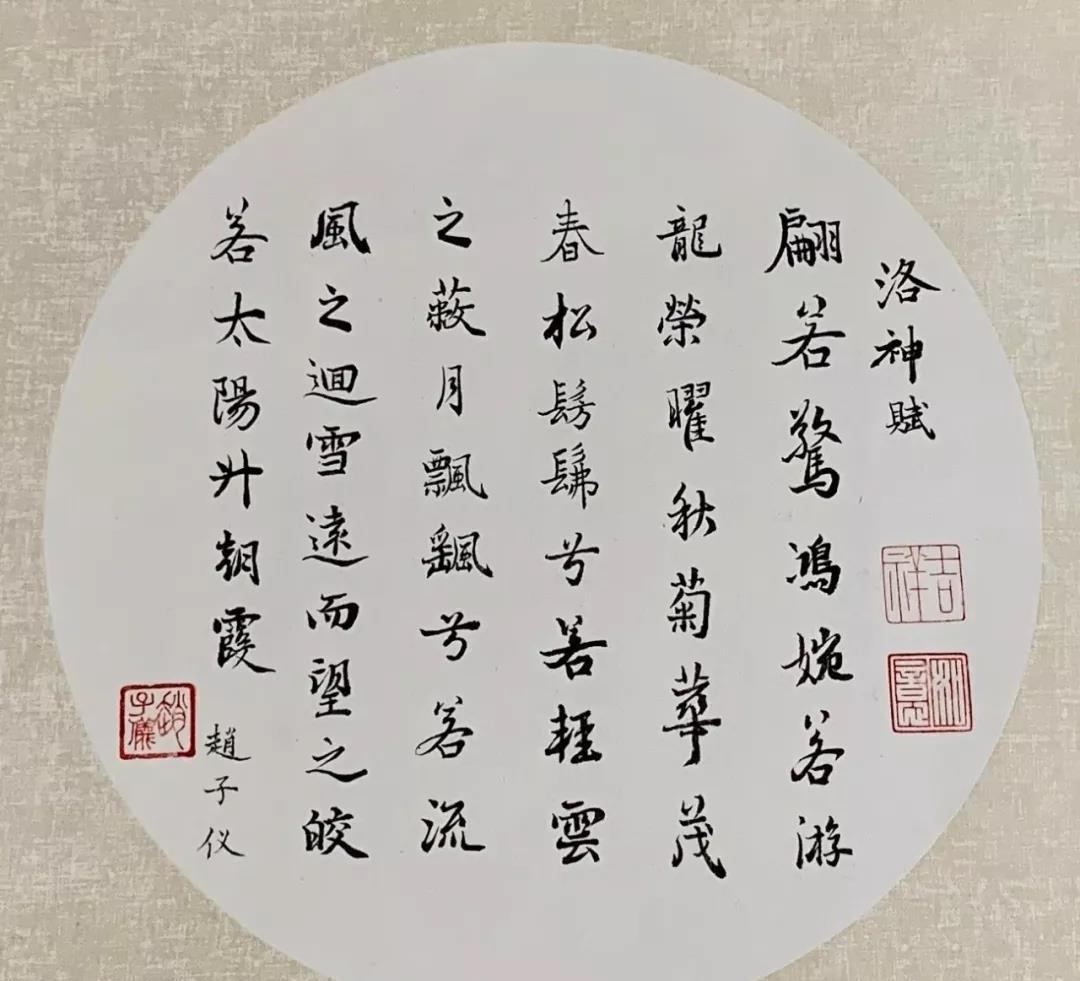 洛神賦
翩若驚鴻婉若游
龍榮曜秋菊華茂
春松髣髴兮若輕雲
之蔽月飄颻兮若流
風之迴雪遠而望之皎
若太陽升朝霞
趙子仪
吉祥
趙子儀